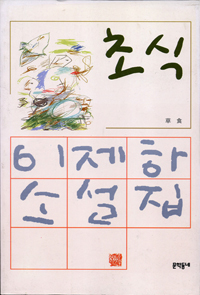 초식
草食
이제하
소설집
문학동네